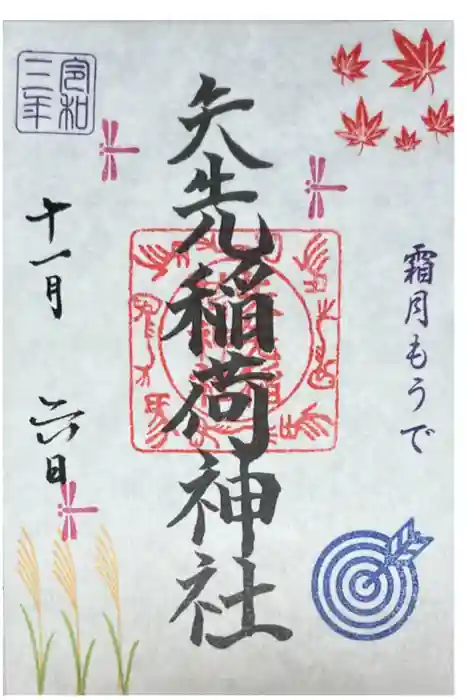 霜月もうで
矢先稲荷神社
令和
三年
十一月 六日